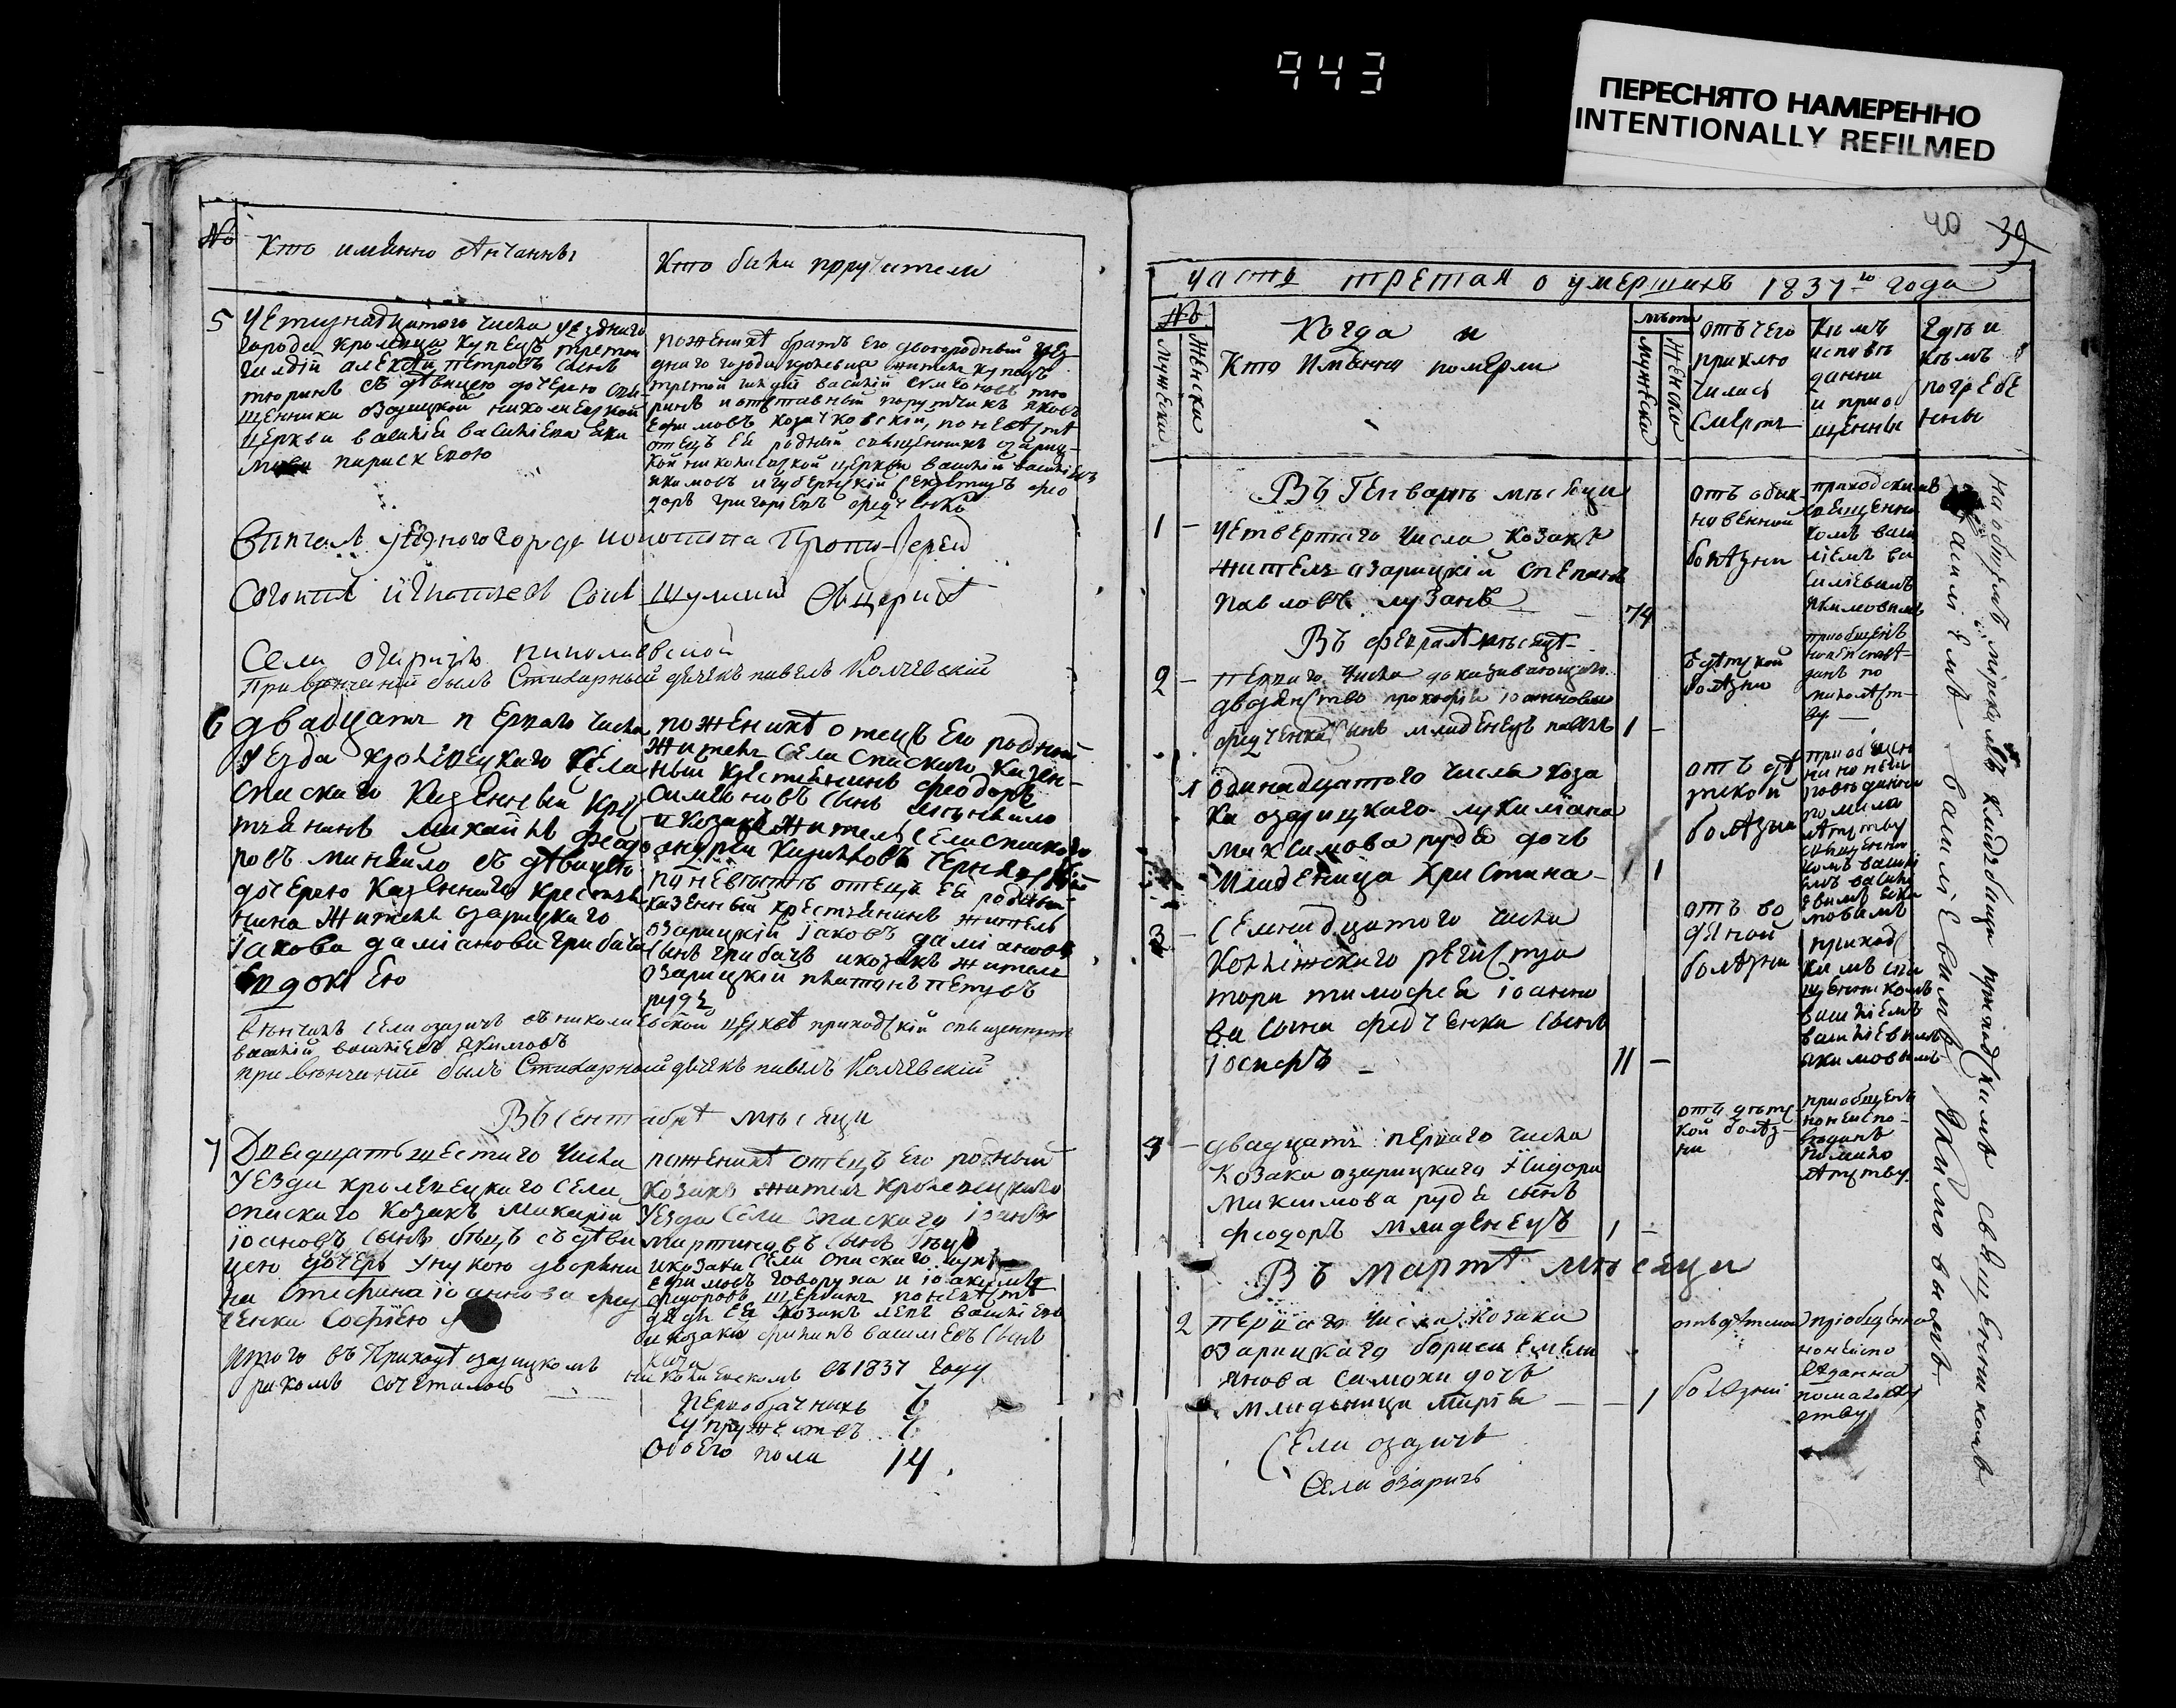 943
ПЕРЕСНЯТО НАМЕРЕННО
INTENTIONALLY REFILMED
№
Кто именно вѣнчанны
Кто были поручители
5
Четирнадцатого числа уездного
города кролевца купецъ третей
гилдій алексѣй петровъ сынъ
тюринъ съ дѣвицею дочерею свя-
щенника озарицкой николаевской
церкви василія василіева яки
мова параскевою
по женихѣ братъ его двоюродный уез-
дного города кролевца житель купецъ
третой гилдіи василій семеновъ тю
ринъ и отставный порутчикъ яковъ
ефимовъ козачковскій, по невѣстѣ
отецъ ея родный священникъ озариц-
кой николаевской церкви василій василіевъ
якимовъ и губернскій секретаръ фео
доръ григоріевъ федченко
Венчалъ уездного города конотопа Прото-Іерей
Села озаричъ николаевской
При венчаніи былъ Стихарный дьячекъ павелъ Колчевскій
6
двадцать перваго числа
уезда кролевецкаго села
спаскаго казенный крес
тянинъ михаилъ феодо
ровъ минаило съ дѣвицею
дочерею казенного крестья
нина жителя озарицкаго
Іакова даміанова грибача
Евдокіею
по женихѣ отецъ его родный
житель села спаского казен-
ный крестьянинъ феодоръ
симеоновъ сынъ
и козакъ житель села спаского
андрей
по невѣстѣ отецъ ея родный
казенный крестьянинъ житель
озарицкій іаковъ даміановъ
сынъ грибачъ и козакъ житель
озарицкій платонъ петровъ
рудь
вѣнчалъ села озаричъ николаевской церквѣ приходскій священникъ
василій василіевъ Якимовъ
при венчаніи былъ Стихарный дьячекъ павелъ Колчевскій
Въ сентабрѣ мѣсяци
7
Двадцать шестаго числа
уезда кролевецкаго села
спаскаго козакъ макарій
іоановъ сынъ бѣлцъ съ дѣви
цею дочерь унукою дворяни
на стефана іоаннова фед
ченка Софіею
по женихѣ отецъ его родный
козакъ житель кролевецкаго
уезда села спаскаго іоанъ
мартиновъ сынъ
и козаки села спаскаго
ефимовъ говоруха и іоакимъ
федоровъ щербакъ по невѣстѣ
дядя ея козакъ левъ василіевъ
и козакъ филипъ василіевъ сынъ
Итого въ Приходѣ озарицкомъ николаевскомъ въ 1837 году
ракомъ сочеталось
первобрачнихъ 7
супружествъ 7
Обоего пола 14
40 39
часть третая о умершихъ 1837го года
№
мужеска
женска
Когда и
Кто Именно померли
лѣта
мужеска
женска
отъ чего
приклю
чилась
Смерть
Кѣмъ
исповѣ
данни
и приоб
щенны
Гдѣ и
кѣмъ
погребе
нны
Въ Генварѣ мѣсяци
1 -
четвертаго числа козакъ
житель озарицкій стефанъ
павловъ лузанъ
74
отъ обик-
новенной
болѣзни
приходскимъ
священни
комъ васи
ліемъ ва
силіевымъ
якимовимъ
Въ февралѣ мѣсяцѣ
2 -
перваго числа доказивающаго
дворянство прокофія іоаннова
федченка сынъ младенецъ павелъ
1 -
дѣтской
болѣзни
приобщенъ
но не испове-
данъ по
малолѣт-
ву
1
Одинадцатого числа коза
ка озарицкаго лукиліана
максимова рудя дочь
младеница Христина
1
отъ дѣ
тской
болѣзни
приобщен
на но не ис
поведанна
по мало
лѣтству
священни
комъ васи
ліемъ василі
евимъ яки
мовимъ
3 -
Семнадцатого числа
колежскаго регистра
тора тимофея іоанно
ва сына федченка сынъ
іосифъ
11 -
отъ во
дяной
болѣзни
приход
кимъ свя
щенникомъ
василіемъ
василіевимъ
якимовимъ
4 -
двадцать перваго числа
Козака озарицкаго Исидора
Максимова рудя сынъ
феодоръ младенецъ
1 -
отъ дѣтс
кой болѣз
ни
приобщенъ
но не испо-
веданъ
по мало
лѣтству
Въ мартѣ мѣсяци
2
перваго числа козака
озарицкаго бориса емели
янова самохи дочь
младеница марія
- 1
отъ дѣтской
болѣзни
пріобщенна
но не испо
веданна
по малолѣт
ству
Села озаричъ
Села озаричъ
на общемъ кладбищи приходскимъ священникомъ
Василіемъ Василіевимъ Якимовимъ